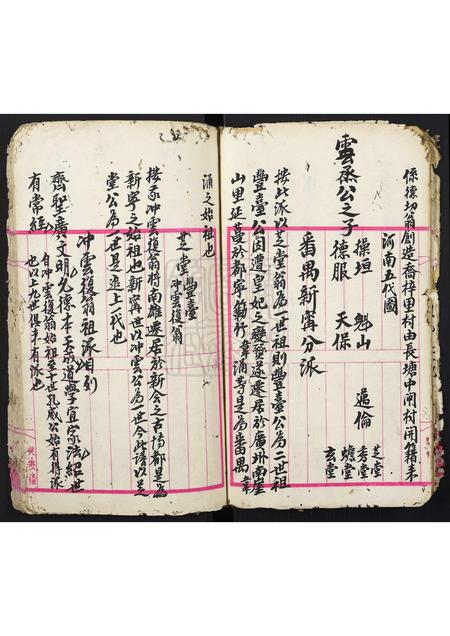 係德初翁創造喬梓里村由長塘中閘村開籍來
河南五代圖
雲丞公之子
操垣 魁山
德服 天保
邁倫
芝堂
秀堂
蟾堂
玄堂
番禺新寧分派
按此派以芝堂翁為一世祖則豐臺公為二世祖
豐臺公因遭皇妃之變賢遂遷居於廣州南崖
山里延蔓於都寧簕竹韋涌考是為番禺韋
涌之始祖也
芝堂 豐臺
沖雲復翁
按京沖雲復翁將南雄遷居於新會之古博都是為
新寧之始祖也新寧世以沖雲公為一世今此請以芝
堂公為一世是追上一代也
沖雲復翁祖派相列
齊聖廣文明允德本天承道學宜家法紹世
有常經
自沖雲復翁始祖至十世孔威公始有得派
也以上九世俱未有派也